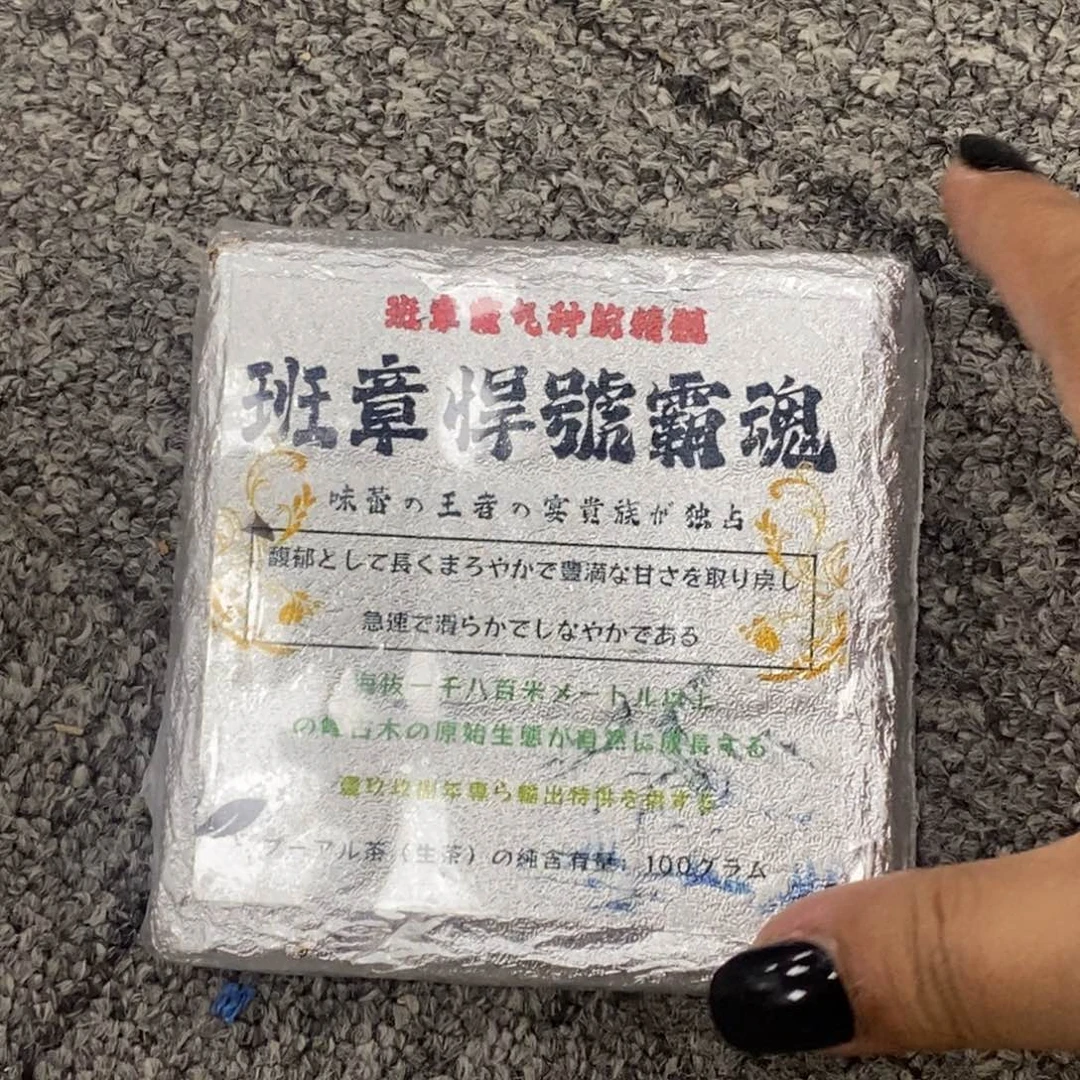 班章霸气神韵精髓
班章悍號霸魂
味蕾の王者の宴貴族が独占
馥郁として長くまろやかで豊満な甘さを取り戻し
急速で滑らかでしなやかである
海抜一千八百米メートル以上
の喬古木の原始生態が自然に成長する
専ら輸出特供を
プーアル茶（生茶）の純含有量：100グラム